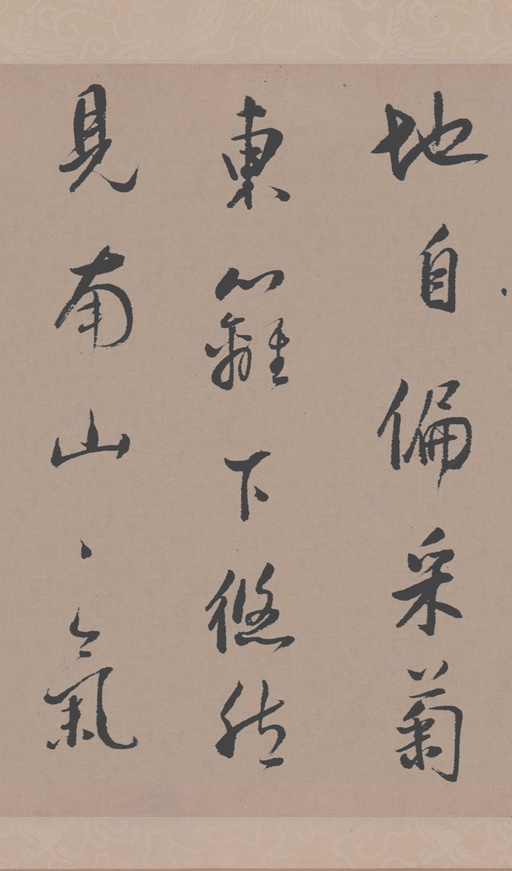 地自偏采菊
東籬下悠然
見南山、氣